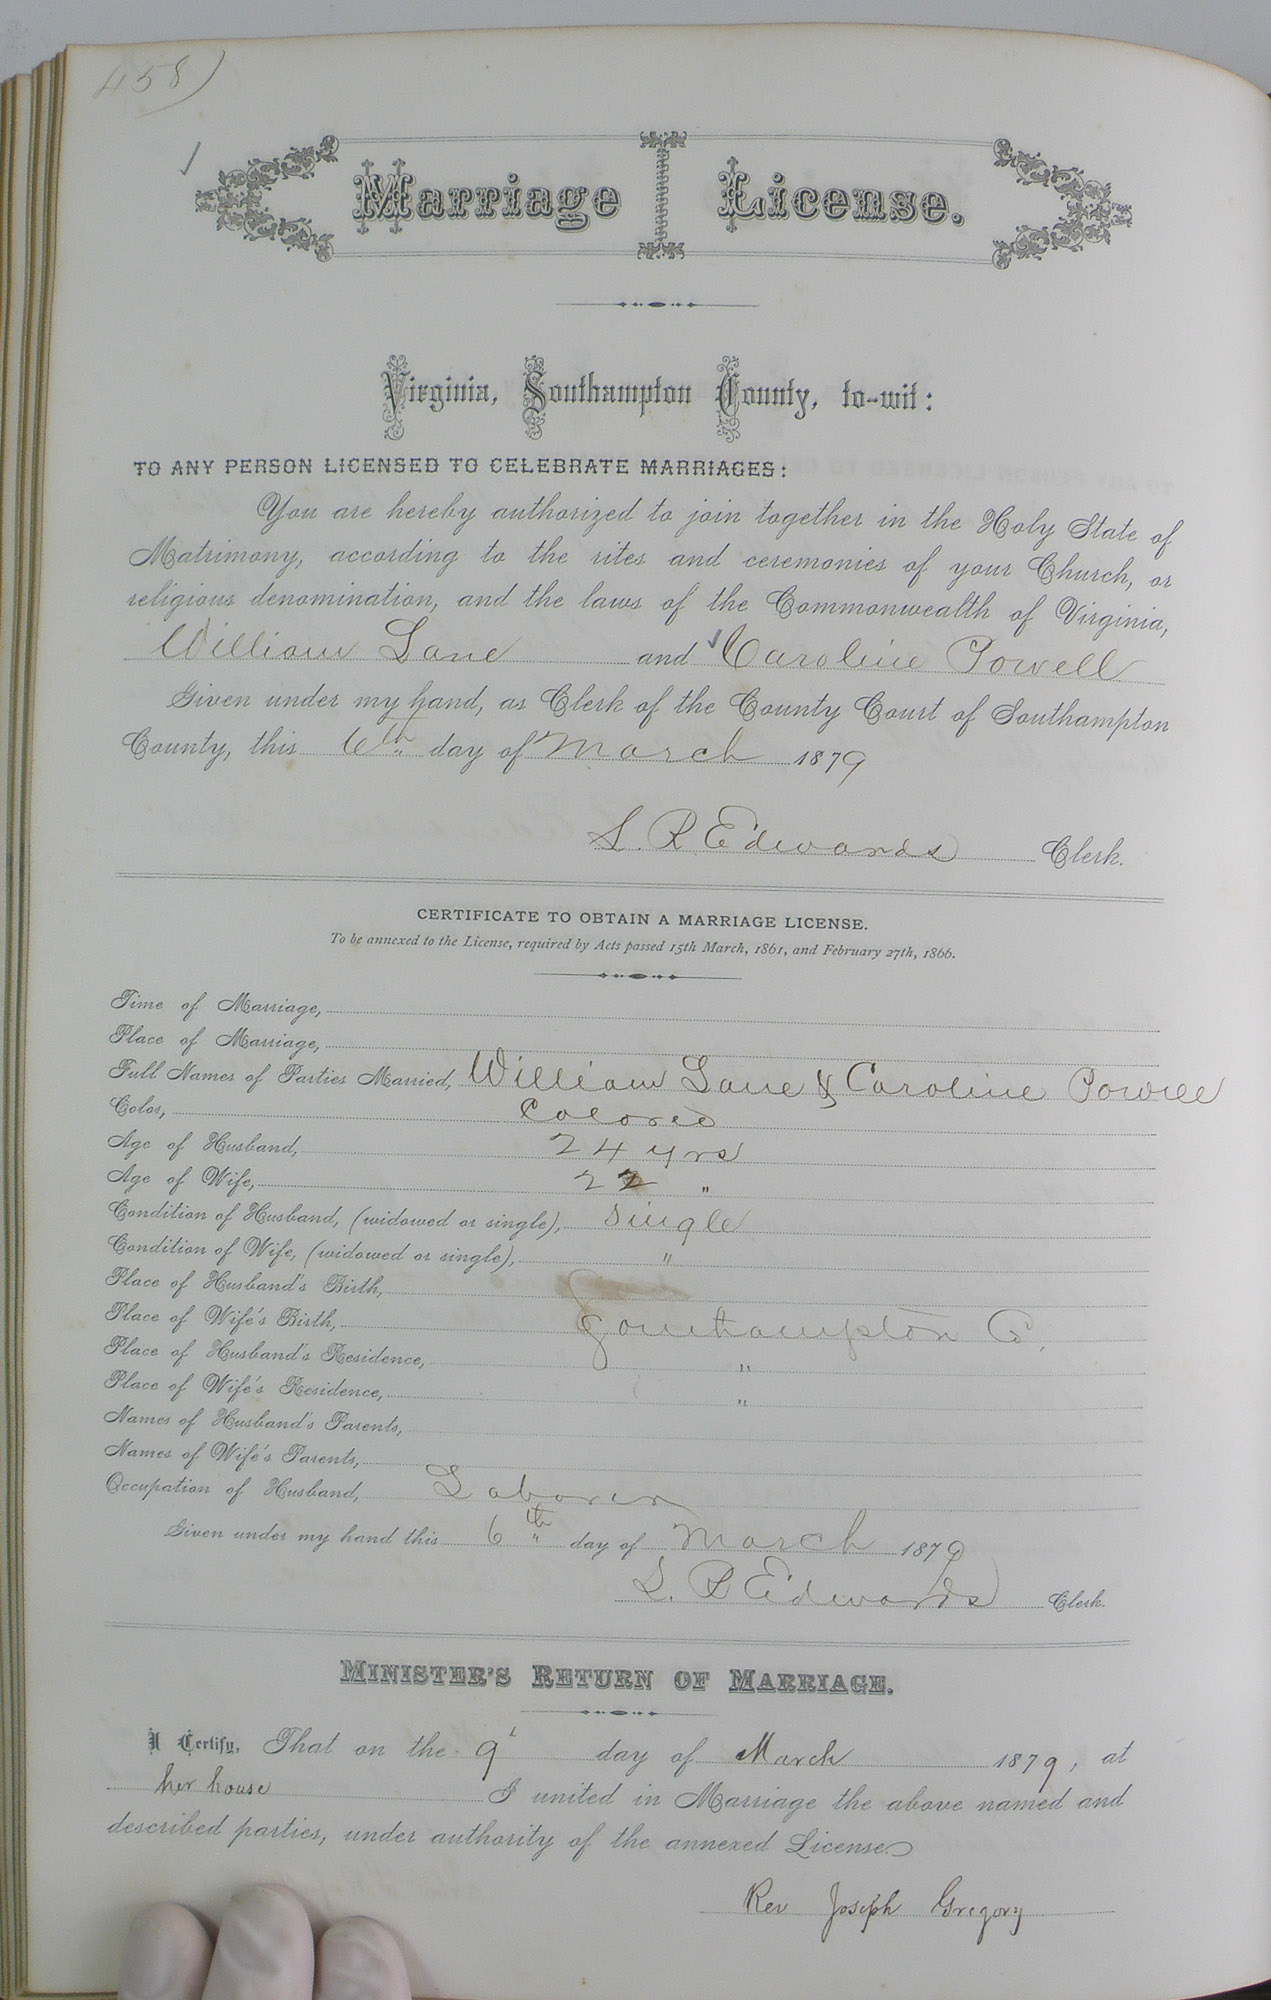 458)
Marriage License.
Virginia, Southampton County, to-wit:
TO ANY PERSON LICENSED TO CELEBRATE MARRIAGES:
You are hereby authorized to join together in the Holy State of
Matrimony, according to the rites and ceremonies of your Church, or
religious denomination, and the laws of the Commonwealth of Virginia,
William Lane and Caroline Powell
Given under my hand, as Clerk of the County Court of Southampton
County, this 6th day of March 1879
L. R Edwards Clerk.
CERTIFICATE TO OBTAIN A MARRIAGE LICENSE.
To be annexed to the License, required by Acts passed 15th March, 1861, and February 27th, 1866.
Time of Marriage,
Place of Marriage,
Full Names of Parties Married, William Lane & Caroline Powell
Color, Colored
Age of Husband, 24 yrs
Age of Wife, 22 "
Condition of Husband, (widowed or single), Single
Condition of Wife, (widowed or single), "
Place of Husband's Birth,
Place of Wife's Birth, Southampton Co,
Place of Husband's Residence, "
Place of Wife's Residence, "
Names of Husband's Parents,
Names of Wife's Parents,
Occupation of Husband, Laborer
Given under my hand this 6th day of March 1879
L. R Edwards Clerk.
MINISTER'S RETURN OF MARRIAGE.
I Certify, That on the 9 day of March 1879, at
her house I united in Marriage the above named and
described parties, under authority of the annexed License
Rev Joseph Gregory